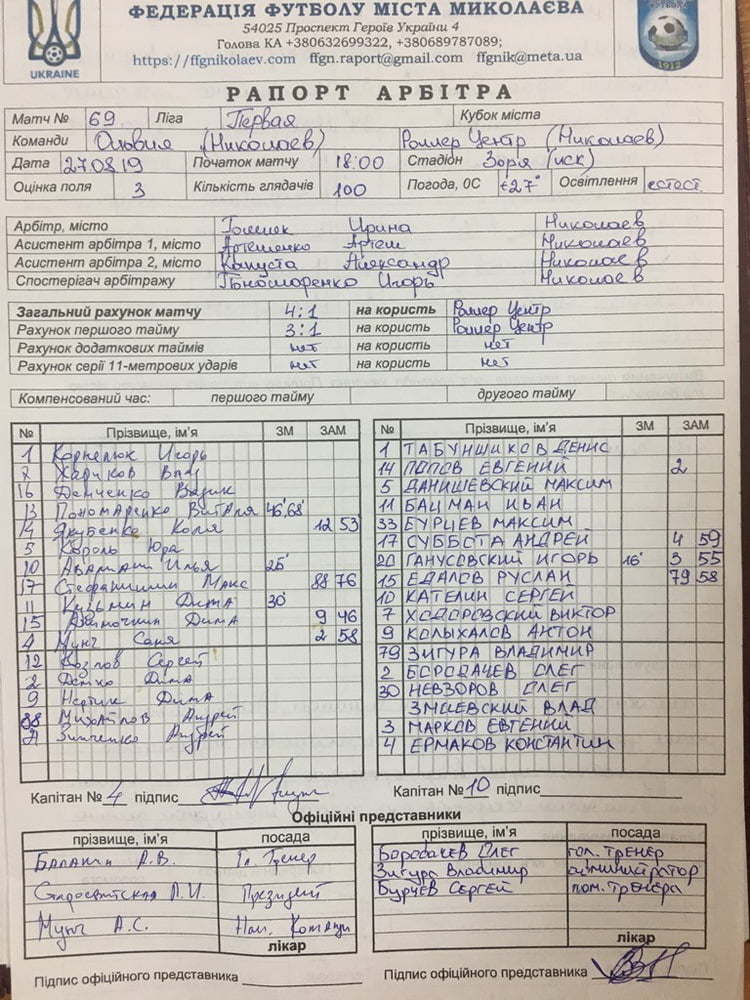 ФЕДЕРАЦІЯ ФУТБОЛУ МІСТА МИКОЛАЄВА
54025 Проспект Героїв України 4
Голова КА +380632699322, +380689787089;
https://ffgnikolaev.com ffgn.raport@gmail.com ffgnik@meta.ua
UKRAINE
1912
РАПОРТ АРБІТРА
Матч № 69 Ліга Первая Кубок міста
Команди Ольвия (Николаев) Роллер Центр (Николаев)
Дата 27.08.19 Початок матчу 18:00 Стадіон Зоря (иск)
Оцінка поля 3 Кількість глядачів 100 Погода, 0С +27° Освітлення естест.
Арбітр, місто Ирина Николаев
Асистент арбітра 1, місто Артеменко Артем Николаев
Асистент арбітра 2, місто Капуста Александр Николаев
Спостерігач арбітражу Пономаренко Игорь Николаев
Загальний рахунок матчу 4:1 на користь Роллер Центр
Рахунок першого тайму 3:1 на користь Роллер Центр
Рахунок додаткових таймів нет на користь нет
Рахунок серії 11-метрових ударів нет на користь нет
Компенсований час: першого тайму другого тайму
№ Прізвище, ім'я ЗМ ЗАМ
1 Корнелюк Игорь
7 Хариков Влад
16 Демченко Вадик
13 Пономаренко Виталя 46', 68'
14 Якубенко Коля 12 53
5 Король Юра
10 Илья 25'
17 Стефанишин Макс 88 76
11 Кузьмин Дима 30'
15 Дима 9 46
4 Мунч Саня 2 58
12 Козлов Сергей
2 Дима
9 Дима
88 Михайлов Андрей
Зинченко Андрей
№ Прізвище, ім'я ЗМ ЗАМ
1 ТАБУНЩИКОВ ДЕНИС
14 ПОПОВ ЕВГЕНИЙ 2
5 ДАНИШЕВСКИЙ МАКСИМ
11 БАЦМАН ИВАН
33 БУРЦЕВ МАКСИМ
17 СУББОТА АНДРЕЙ 4 59
20 ГАНУСОВСКИЙ ИГОРЬ 16' 3 55
15 ЕДАЛОВ РУСЛАН 79 58
10 КАТЕЛИН СЕРГЕЙ
7 ХОДОРОВСКИЙ ВИКТОР
9 КОЛЫХАЛОВ АНТОН
79 ЗИГУРА ВЛАДИМИР
2 БОРОДАЧЕВ ОЛЕГ
30 НЕВЗОРОВ ОЛЕГ
ЗМИЕВСКИЙ ВЛАД
3 МАРКОВ ЕВГЕНИЙ
4 ЕРМАКОВ КОНСТАНТИН
Капітан № 4 підпис
Капітан № 10 підпис
Офіційні представники
прізвище, ім'я посада
А.В. Гл. Тренер
Л.И. Президент
Мунч А.С. Нач. Команды
лікар
прізвище, ім'я посада
Бородачев Олег гол. тренер
Зигура Владимир администратор
Бурцев Сергей пом. тренера
лікар
Підпис офіційного представника
Підпис офіційного представника